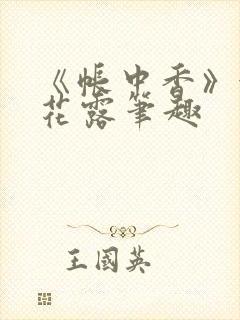 《帐中香》
花露笔趣
王國英